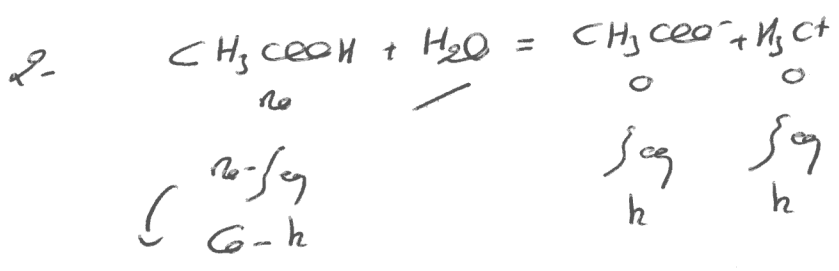 2- CH₃COOH + H₂O = CH₃COO⁻ + H₃O⁺
n₀ / 0 0
n₀-ξéq ξéq ξéq
C₀-h h h